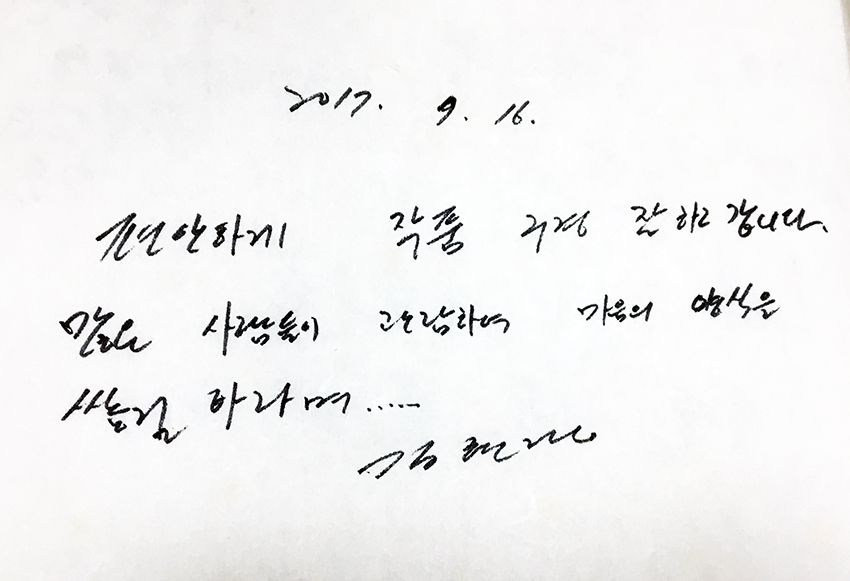 2017. 9. 16.
편안하게 작품 구경 잘 하고 갑니다.
많은 사람들이 관람하여 마음의 양식을
쌓길 바라며......